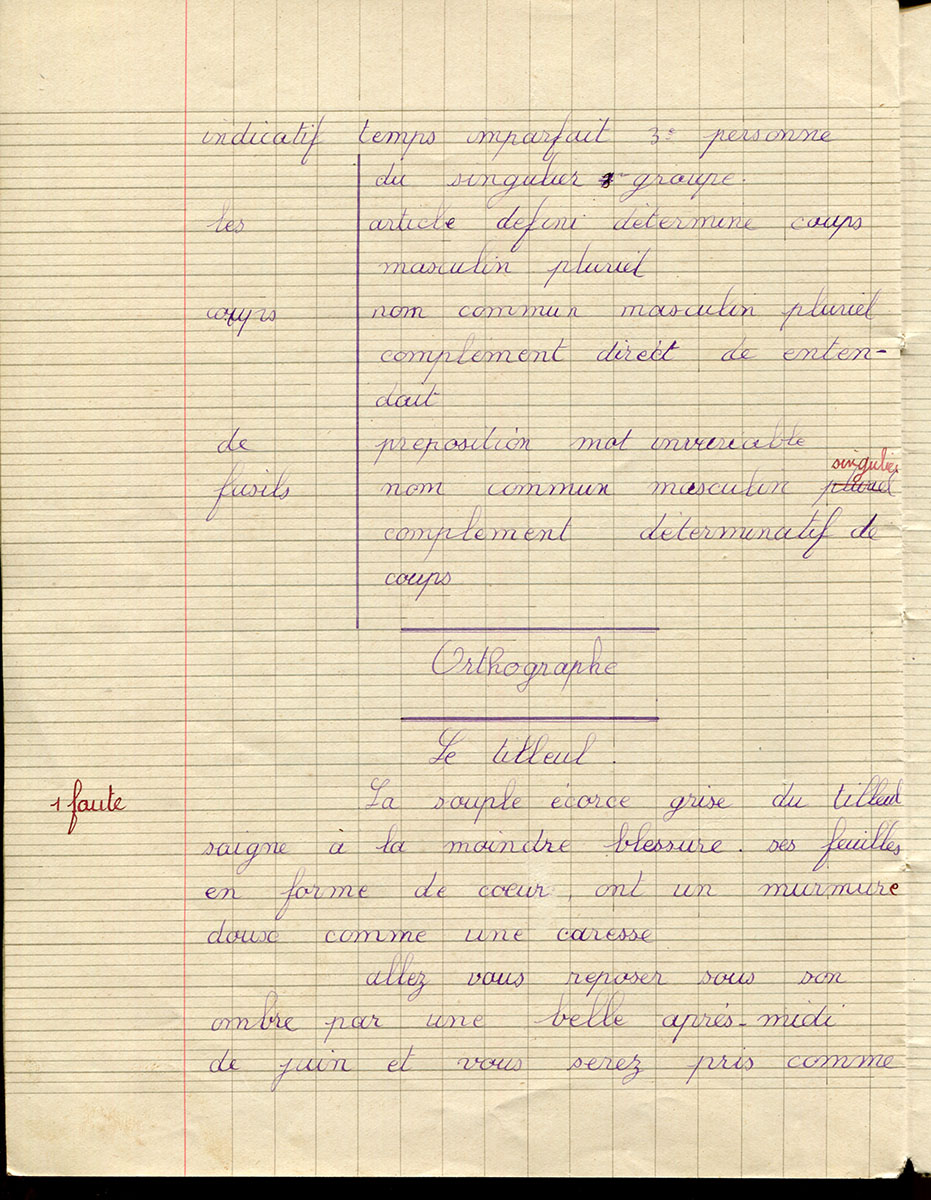 indicatif temps imparfait 3e personne
du singulier groupe.
les article defini détermine coups
masculin pluriel
coups nom commun masculin pluriel
complement direct de enten-
dait
de preposition mot invariable
singulier
fusils nom commun masculin pluriel
complement déterminatif de
coups
Orthographe
Le tilleul.
1 faute La souple écorce grise du tilleul
saigne à la moindre blessure. ses feuilles
en forme de coeur, ont un murmure
doux comme une caresse
allez vous reposer sous son
ombre par une belle aprés-midi
de juin et vous serez pris comme